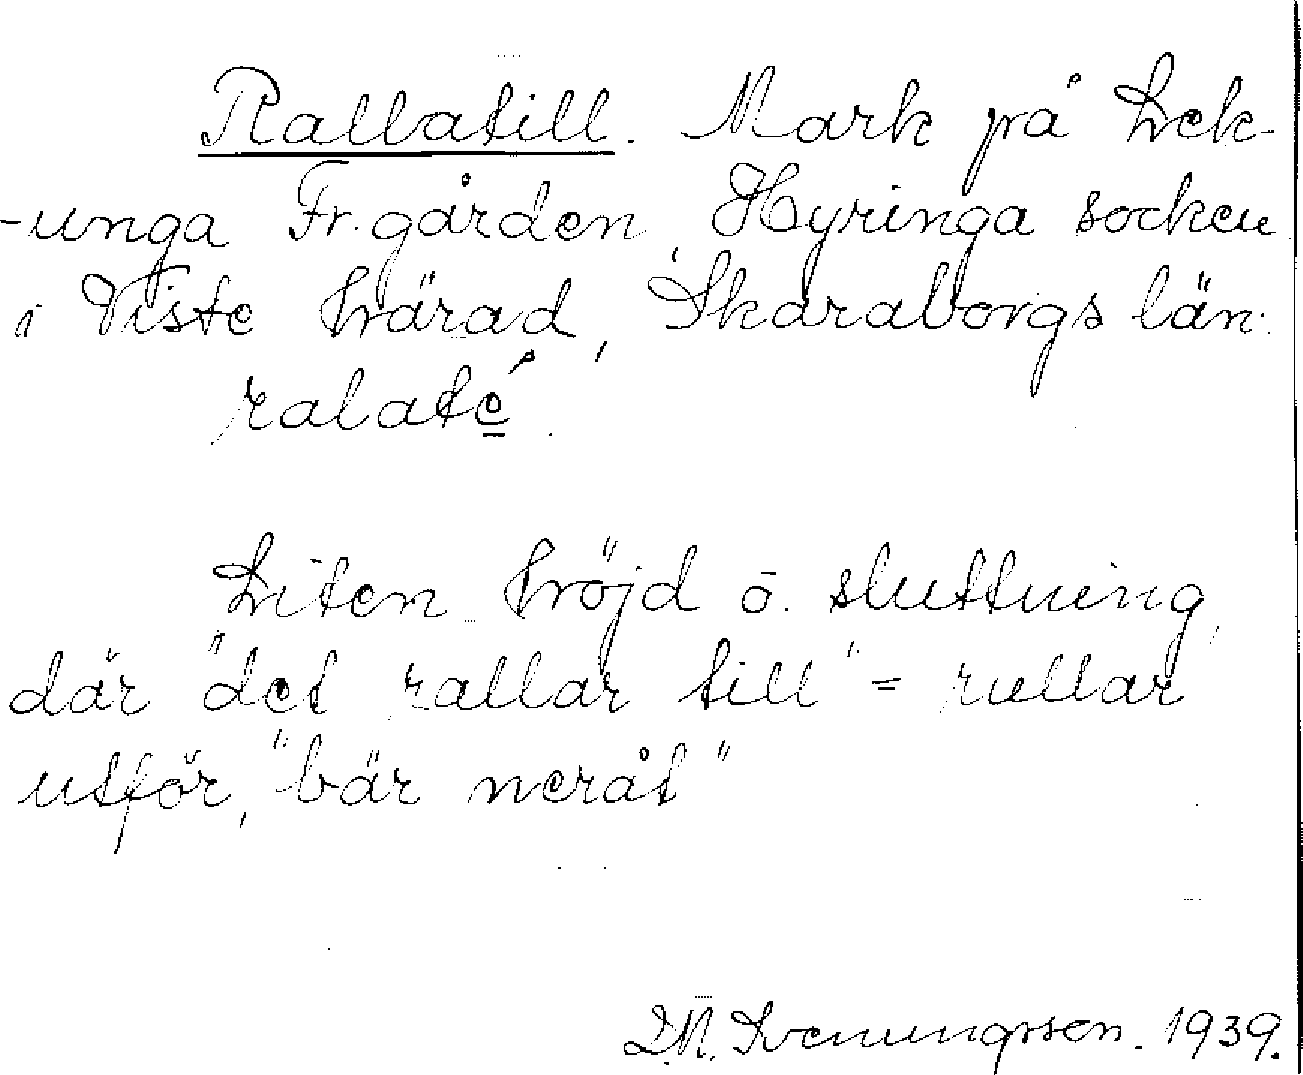 Rallatill. Mark på Lek-
-unga Fr.gården, Hyringa socken
i Viste härad, Skaraborgs län.
ralaté
Liten höjd o. sluttning,
där "det rallar till" = rullar
utför, "bär neråt"
D.N. Svenungsson. 1939.